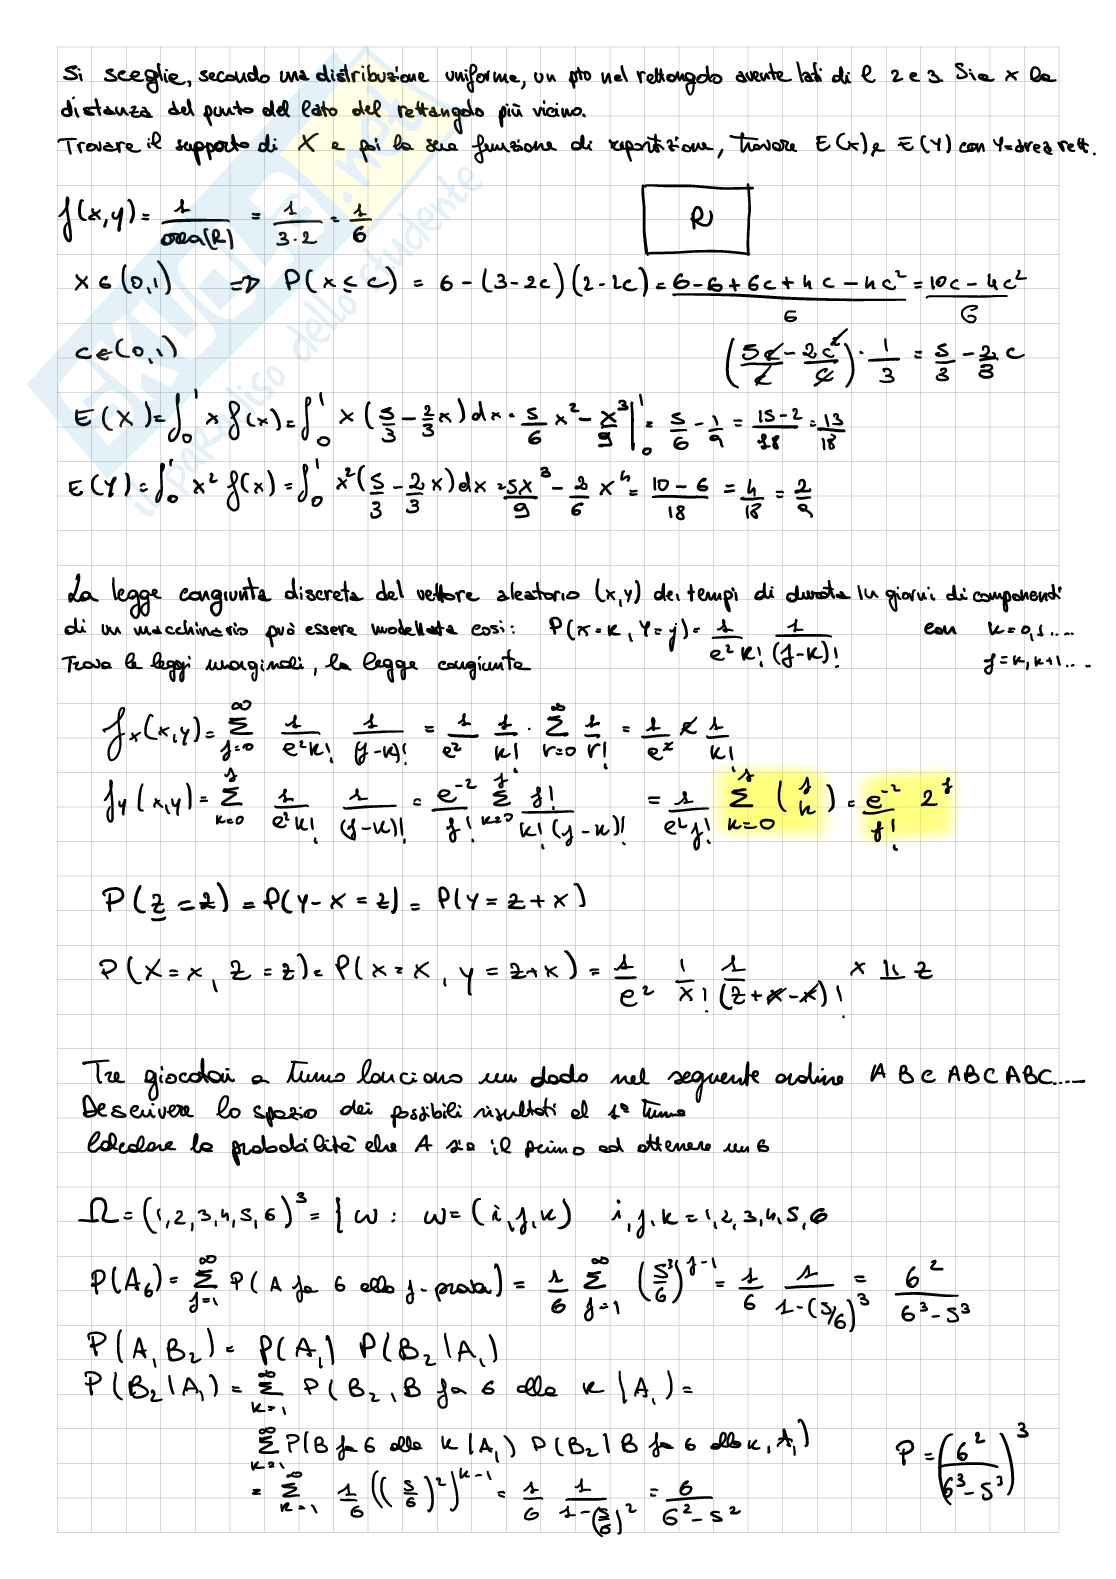 Si sceglie, secondo una distribuzione uniforme, un pto nel rettangolo avente lati di l 2 e 3 Sia x la
distanza del punto del lato del rettangolo più vicino.
Trovare il supporto di X e poi la sua funzione di ripartizione, trovare E(x) e E(Y) con Y=area rett.
f(x,y) = 1/area(R) = 1/(3·2) = 1/6
R
x ∈ (0,1) => P(x ≤ c) = 6-(3-2c)(2-2c) = (6-6+6c+4c-4c²)/6 = (10c-4c²)/6
c ∈ (0,1) (5c/2 - 2c²/2)·1/3 = 5/3 - 2/3 c
E(X) = ∫₀¹ x f(x) = ∫₀¹ x (5/3 - 2/3 x) dx = 5/6 x² - x³/9 |₀¹ = 5/6 - 1/9 = (15-2)/18 = 13/18
E(Y) = ∫₀¹ x² f(x) = ∫₀¹ x² (5/3 - 2/3 x) dx = 5x³/9 - 2/6 x⁴ = (10-6)/18 = 4/18 = 2/9
La legge congiunta discreta del vettore aleatorio (x,y) dei tempi di durata in giorni di componenti
di un macchinario può essere modellata così: P(x=k, Y=j) = 1/(e²k!) 1/(j-k)! con k=0,1....
Trova le leggi marginali, la legge congiunta j=k,k+1....
fx(x,y) = Σ_{j=0}^∞ 1/(e²k!) 1/(j-k)! = 1/e² 1/k! · Σ_{r=0}^∞ 1/r! = 1/e² e 1/k!
fy(x,y) = Σ_{k=0}^j 1/(e²k!) 1/(j-k)! = e⁻²/j! Σ_{k=0}^j j!/(k!(j-k)!) = 1/(e²j!) Σ_{k=0}^j (j k) = e⁻²/j! 2^j
P(z=z) = P(Y-X=z) = P(Y=z+x)
P(X=x, Z=z) = P(x=x, y=z+x) = 1/e² 1/x! 1/(z+x-x)! x ⊥⊥ z
Tre giocatori a turno lanciano un dado nel seguente ordine A B C ABC ABC.....
Descrivere lo spazio dei possibili risultati al 1° turno
Calcolare la probabilità che A sia il primo ad ottenere un 6
Ω = (1,2,3,4,5,6)³ = { ω : ω = (i,j,k) i,j,k = 1,2,3,4,5,6
P(A₆) = Σ_{j=1}^∞ P(A fa 6 alla j-prova) = 1/6 Σ_{j=1}^∞ (5³/6)^{j-1} = 1/6 1/(1-(5/6)³) = 6²/(6³-5³)
P(A₁B₂) = P(A₁) P(B₂|A₁)
P(B₂|A₁) = Σ_{k=1}^∞ P(B₂, B fa 6 alla k |A₁) =
Σ_{k=1}^∞ P(B fa 6 alla k |A₁) P(B₂| B fa 6 alla k, A₁) P = (6²/(6³-5³))³
= Σ_{k=1}^∞ 1/6 ((5/6)²)^{k-1} = 1/6 1/(1-(5/6)²) = 6/(6²-5²)